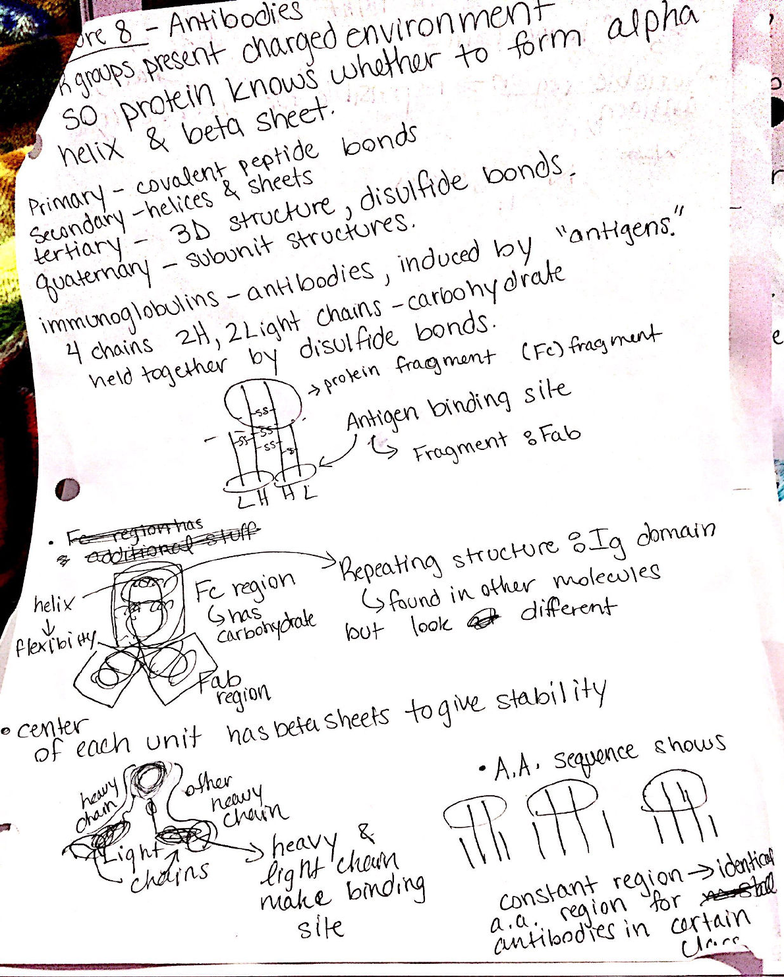 ure 8 - Antibodies
R groups present charged environment
so protein knows whether to form alpha
helix & beta sheet.
Primary - covalent peptide bonds
Secondary - helices & sheets
tertiary - 3D structure, disulfide bonds.
quaternary - subunit structures.
immunoglobulins - antibodies, induced by "antigens."
4 chains 2H, 2Light chains - carbohydrate
held together by disulfide bonds.
→ protein fragment (Fc) fragment
-SS-
-SS- -SS-
-SS-
Antigen binding site
↳ Fragment : Fab
L H H L
• Fc region has
additional stuff
helix
↓
flexibility
Fc region
↳ has
carbohydrate
Fab
region
Repeating structure : Ig domain
↳ found in other molecules
but look different
• center
of each unit has beta sheets to give stability
heavy
chain
other
heavy
chain
Light
chains
→ heavy &
light chain
make binding
site
• A.A. sequence shows
constant region → identical
a.a. region for
antibodies in certain